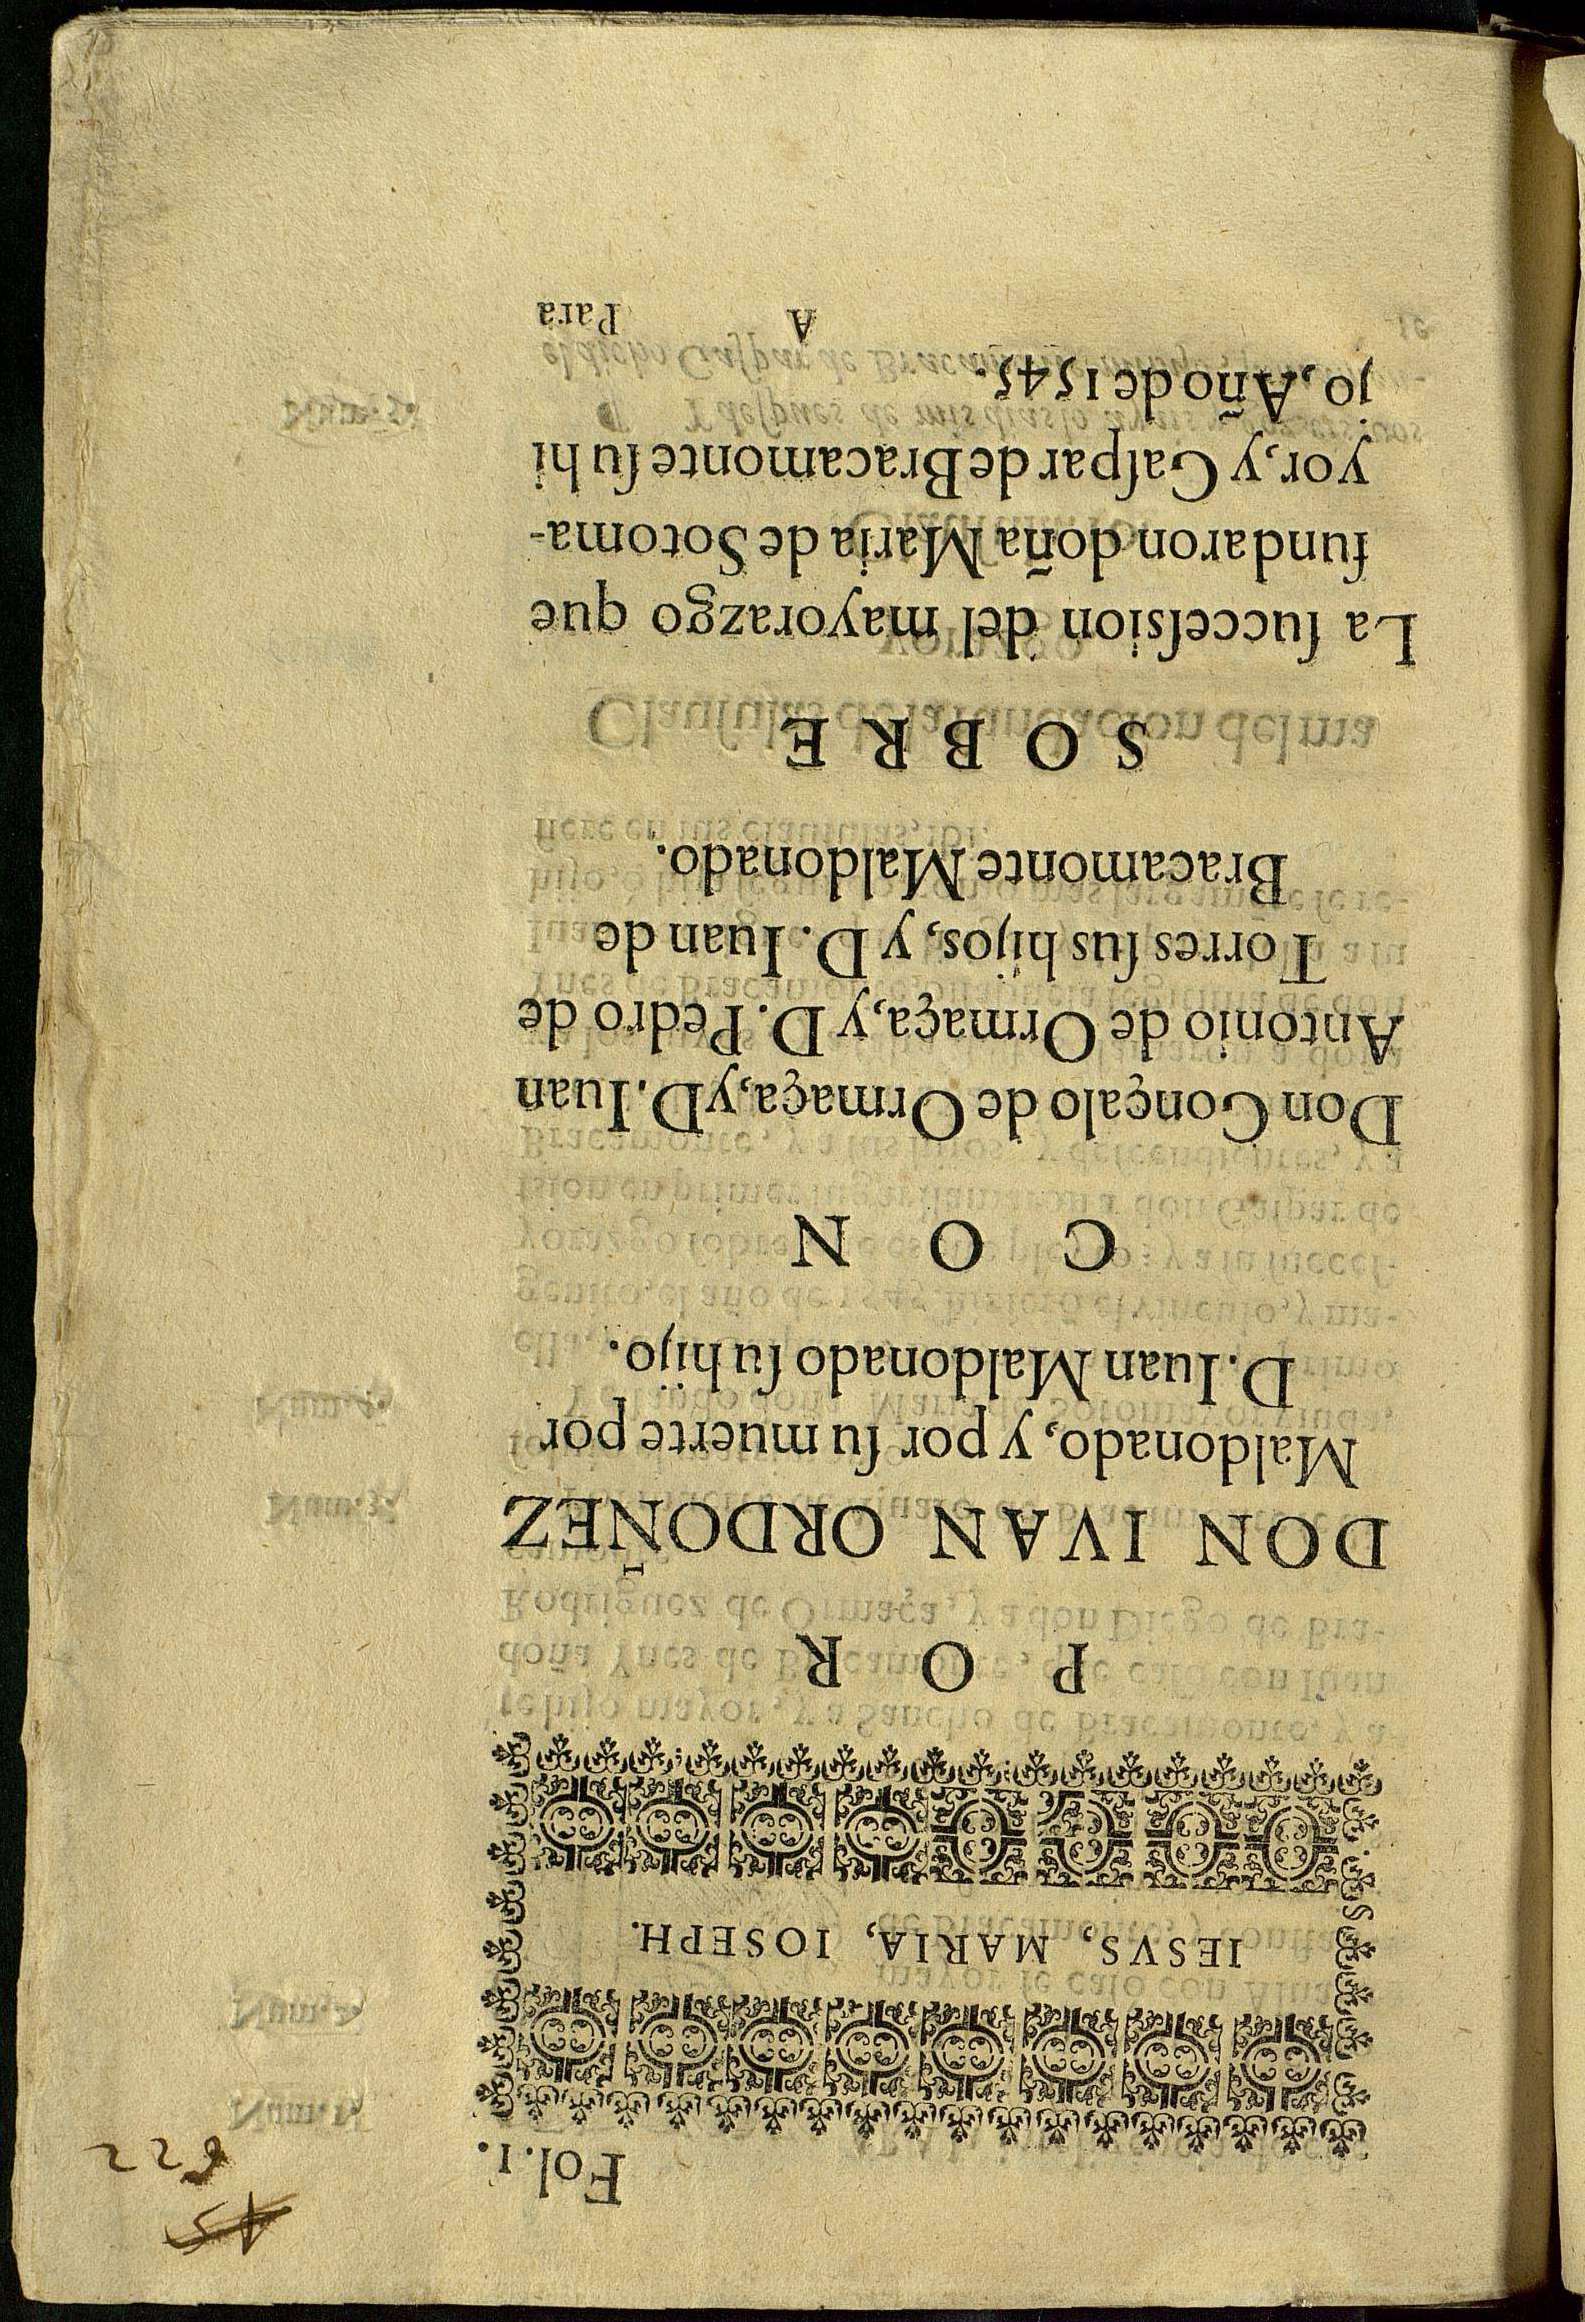 Fol. 1.
IESVS, MARIA, IOSEPH.
P O R
DON IVAN ORDOÑEZ
Maldonado, y por ſu muerte por
D. Iuan Maldonado ſu hijo.
C O N
Don Gonçalo de Ormaça, y D. Iuan
Antonio de Ormaça, y D. Pedro de
Torres ſus hijos, y D. Iuan de
Bracamonte Maldonado.
S O B R E
La ſucceſsion del mayorazgo que
fundaron doña Maria de Sotoma-
yor, y Gaſpar de Bracamonte ſu hi
jo, Año de 1545.
A Para